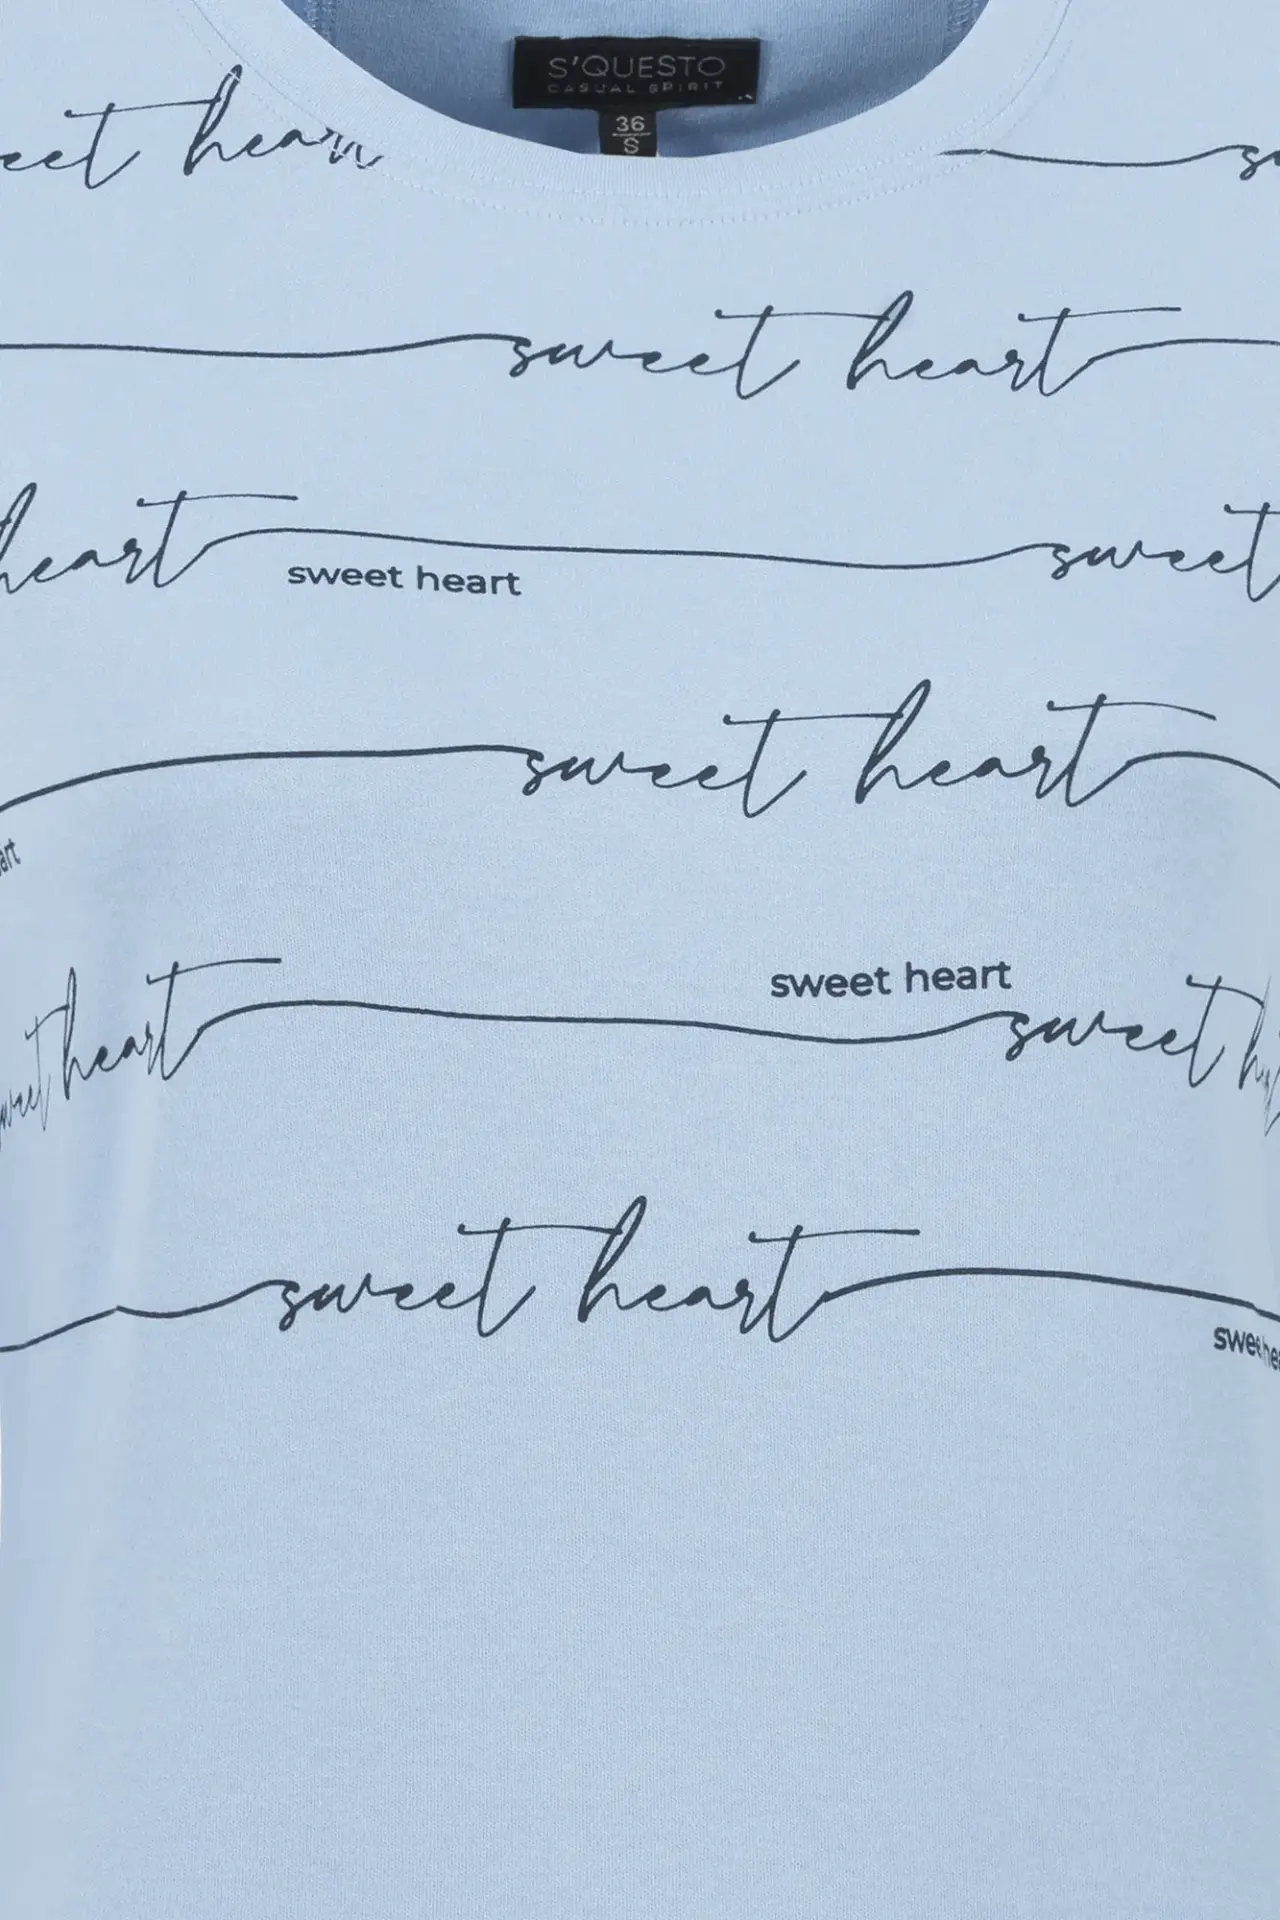 S'QUESTO
CASUAL SPIRIT
36
S
eet heart
sweet heart
heart sweet
sweet heart
sweet heart
art
sweet heart
sweet heart sweet
sweet heart